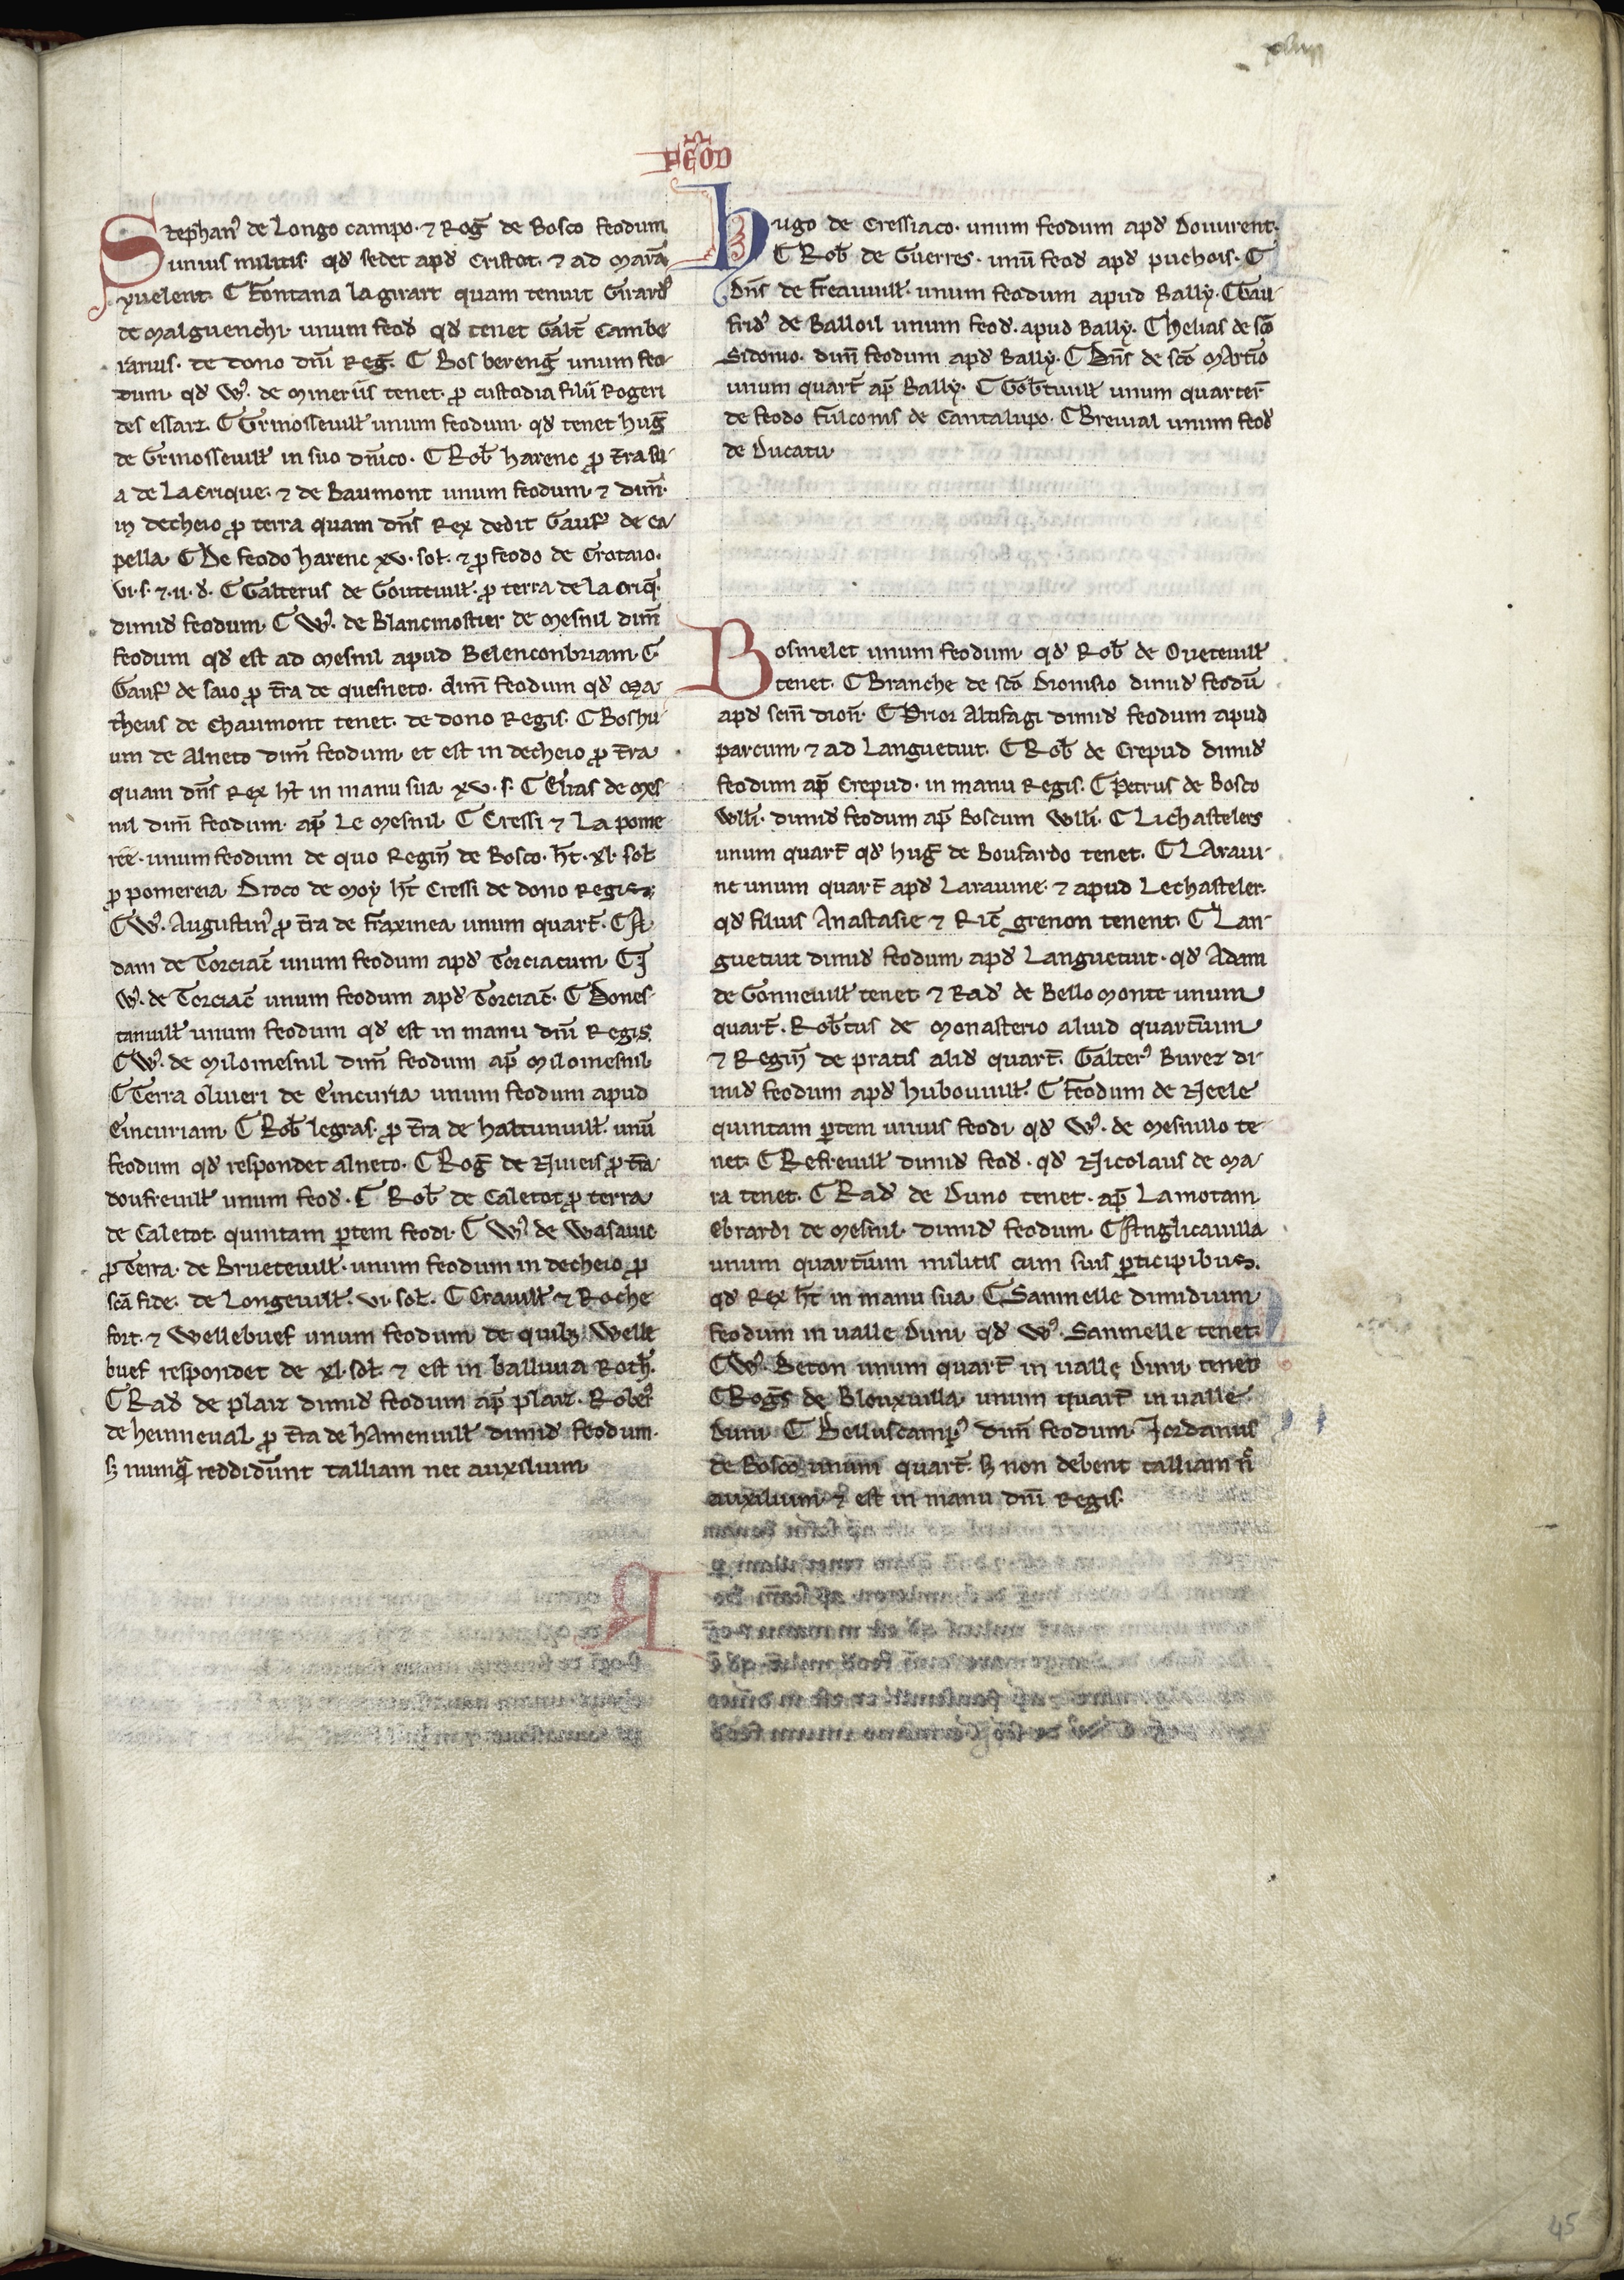 FEOD
Stephan⁹ de Longo campo· ⁊ Rog̃ de Bosco feodum
unius militis qđ sedet apđ Cristot· ⁊ ad marã
yuelent· ⸿ Fontana la girart quam tenuit Girarđ
de malguenchi· unum feođ qđ tenet Galt̃ Cambe
rarius· de dono dñi Reg̃· ⸿ Bos bereng̃ unum feo-
dum· qđ W⁹· de mineriis tenet· ꝓ custodia filii Rogeri
des essarz· ⸿ Grinosseuill̃ unum feodum· qđ tenet hug̃
de Grinosseuill̃ in suo dñico· ⸿ Rob̃ harenc ꝓ t̃ra su-
a de La crique· ⁊ de Baumont unum feodum· ⁊ dim̃·
in decheio ꝓ terra quam dñs Rex dedit Gauf̃ de ca-
pella· ⸿ De feodo harenc xv· sol̃· ⁊ ꝓ feodo de Crotaio·
vi· s̃· ⁊· ii· đ· ⸿ Galterus de Gouteuill̃· ꝓ terra de la criq̃·
dimiđ feodum· ⸿ W⁹· de Blancmostier de mesnil dim̃
feodum qđ est ad mesnil apud Belenconbriam· ⸿
Gauf̃ de saio ꝓ t̃ra de quesneto· dim̃ feodum qđ Ma-
theus de Chaumont tenet· de dono Regis· ⸿ Boshu-
um de Alneto dim̃ feodum· et est in decheio ꝓ t̃ra
quam dñs Rex ht̃ in manu sua xv· s̃· ⸿ Elias de mes
nil dim̃ feodum· ap̃ Le mesnil· ⸿ Cressi ⁊ La pome
ree· unum feodum de quo Regin̄ de Bosco· ht̃· xl· sol̃
ꝓ pomereia Droco de moy ht̃ Cressi de dono Regis·
⸿ W⁹· Augustin⁹ ꝓ t̃ra de fraxinea unum quart̃· ⸿ A-
dam de Torciac̃ unum feodum apđ Torciacum ⸿ J
W⁹· de Torciac̃ unum feodum apđ Torciac̃· ⸿ Dones-
tanuill̃ unum feodum qđ est in manu dñi Regis·
⸿ W⁹· de milomesnil dim̃ feodum ap̃ milomesnil·
⸿ Terra oliueri de Eincuria unum feodum apud
Eincuriam· ⸿ Rob̃ legras· ꝓ t̃ra de hattunuill̃· unū
feodum qđ respondet alneto· ⸿ Rog̃ de Niueis ꝓ t̃ra
doufreuill̃ unum feođ· ⸿ Rob̃ de Caletot ꝓ terra
de Caletot· quintam ꝑtem feodi· ⸿ W⁹· de Wasauic
ꝓ Terra· de Brueteuill̃· unum feodum in decheio ꝓ
scã fide· de Longeuill̃· vi· sol̃· ⸿ Crauill̃ ⁊ Roche
fort· ⁊ Wellebuef unum feodum de quibꝫ Welle
buef respondet de xl· sol̃· ⁊ est in balliuia Roth̃·
⸿ Rađ de plaiz dimiđ feodum ap̃ plaiz· Rober⁹
de heinneual ꝓ t̃ra de hAmenuill̃ dimiđ feodum·
ꝫ numq̃ reddidūnt talliam nec auxilium·
hugo de Cressiaco· unum feodum apđ Douurent·
⸿ Rob̃ de Guerres· unū feođ apđ puchois· ⸿
Dñs de Freauuill̃· unum feodum apud Bally· ⸿ Gau-
friđ de Balloil unum feođ· apud Bally· ⸿ helias de scõ
Sidonio· dim̃ feodum apđ Bally· ⸿ Dñs de scõ Martĩo
unum quart̃ ap̃ Bally· ⸿ Gob̃tuill̃ unum quarter̃
de feodo fulconis de Cantalupo· ⸿ Breiual unum feođ
de Ducatu·
Bosmelet unum feodum· qđ Rob̃ de Oueteuill̃
tenet· ⸿ Branche de scõ Dionisio dimiđ feodū
apđ scm̃ dion̄· ⸿ Prior Altifagi dimiđ feodum apud
parcum· ⁊ ad Languetuit· ⸿ Rob̃ de Crepud dimiđ
feodum ap̃ Crepud· in manu Regis· ⸿ Petrus de Bosco
Will̃i· dimiđ feodum ap̃ Boscum Will̃i· ⸿ Lichastelers
unum quart̃ qđ hug̃ de Boufardo tenet· ⸿ LAraui-
ne unum quart̃ apđ Larauine· ⁊ apud Lechasteler·
qđ filius Anastasie ⁊ Ric̃ grenon tenent· ⸿ Lan-
guetuit dimiđ feodum· apđ Languetuit· qđ Adam
de Gonneuill̃ tenet· ⁊ Rađ de Bello monte unum
quart̃· Rob̃tus de monasterio aliud quart̃ium
⁊ Regin̄ de pratis aliđ quart̃· Galter⁹ Burez di-
miđ feodum apđ hubouuill̃· ⸿ Feodum de Neele
quintam ꝑtem unius feodi qđ W⁹· de mesnillo te-
net· ⸿ Refreuill̃ dimiđ feođ· qđ Nicolaus de ma-
ra tenet· ⸿ Rađ de Duno tenet· ap̃ Lamotam
Ebrardi de mesnil· dimiđ feodum· ⸿ Anglicauilla
unum quart̃ium militis cum suis ꝑticipibus·
qđ Rex ht̃ in manu sua· ⸿ Sanmelle dimidium
feodum in ualle Duni qđ W⁹· Sanmelle tenet·
⸿ W⁹· Beton unum quart̃ in ualle Duni tenet
⸿ Rog̃s de Blouxuilla unum quart̃ in ualle
Duni· ⸿ Belluscamp⁹ dim̃ feodum· Jordanus
de Bosco unum quart̃· ꝫ non debent talliam ñ
auxilium· ⁊ est in manu dñi Regis·
45